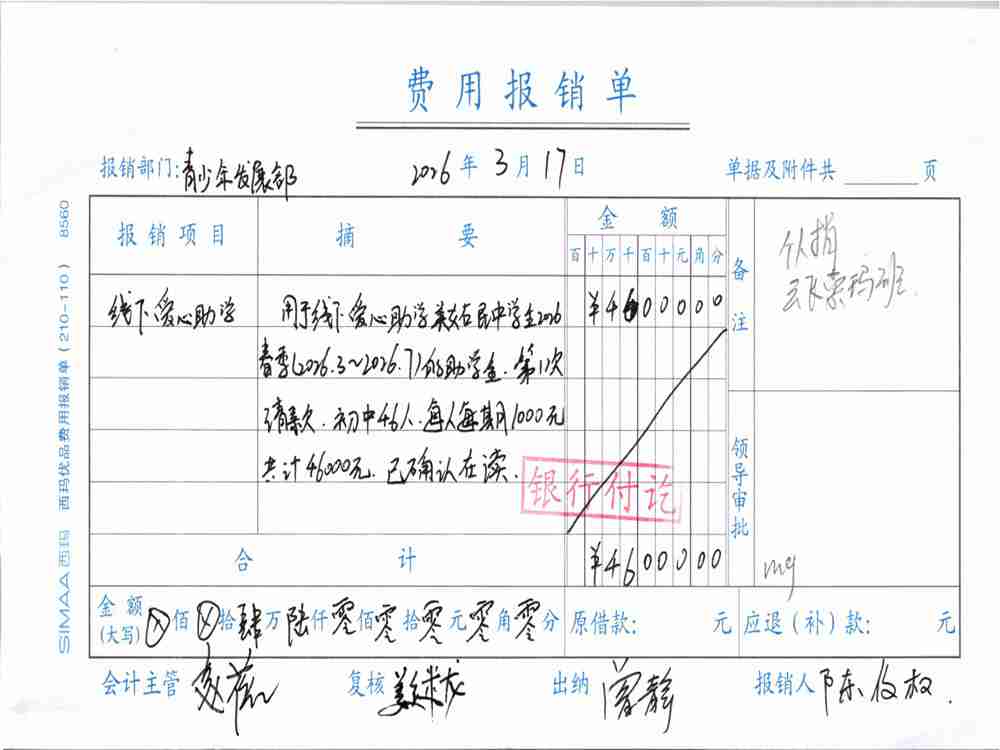 费用报销单
报销部门:青少年发展部 2026年3月17日 单据及附件共 页
报销项目 摘要 金额 备注
百十万千百十元角分
线下爱心助学 用于线下爱心助学美女石民中学生2026 ¥4600000
春季(2026.3~2026.7)的助学金.第1次
请款.初中46人.每人每期1000元
共计46000元.已确认在读.
个人捐
班.
银行付讫
领导审批
合计 ¥4600000
金额(大写) ⊗佰⊗拾肆万陆仟零佰零拾零元零角零分 原借款: 元 应退(补)款: 元
会计主管 复核 出纳 曾静 报销人 陈俊权.
SIMAA 西玛 西玛优品费用报销单(210-110) 8560